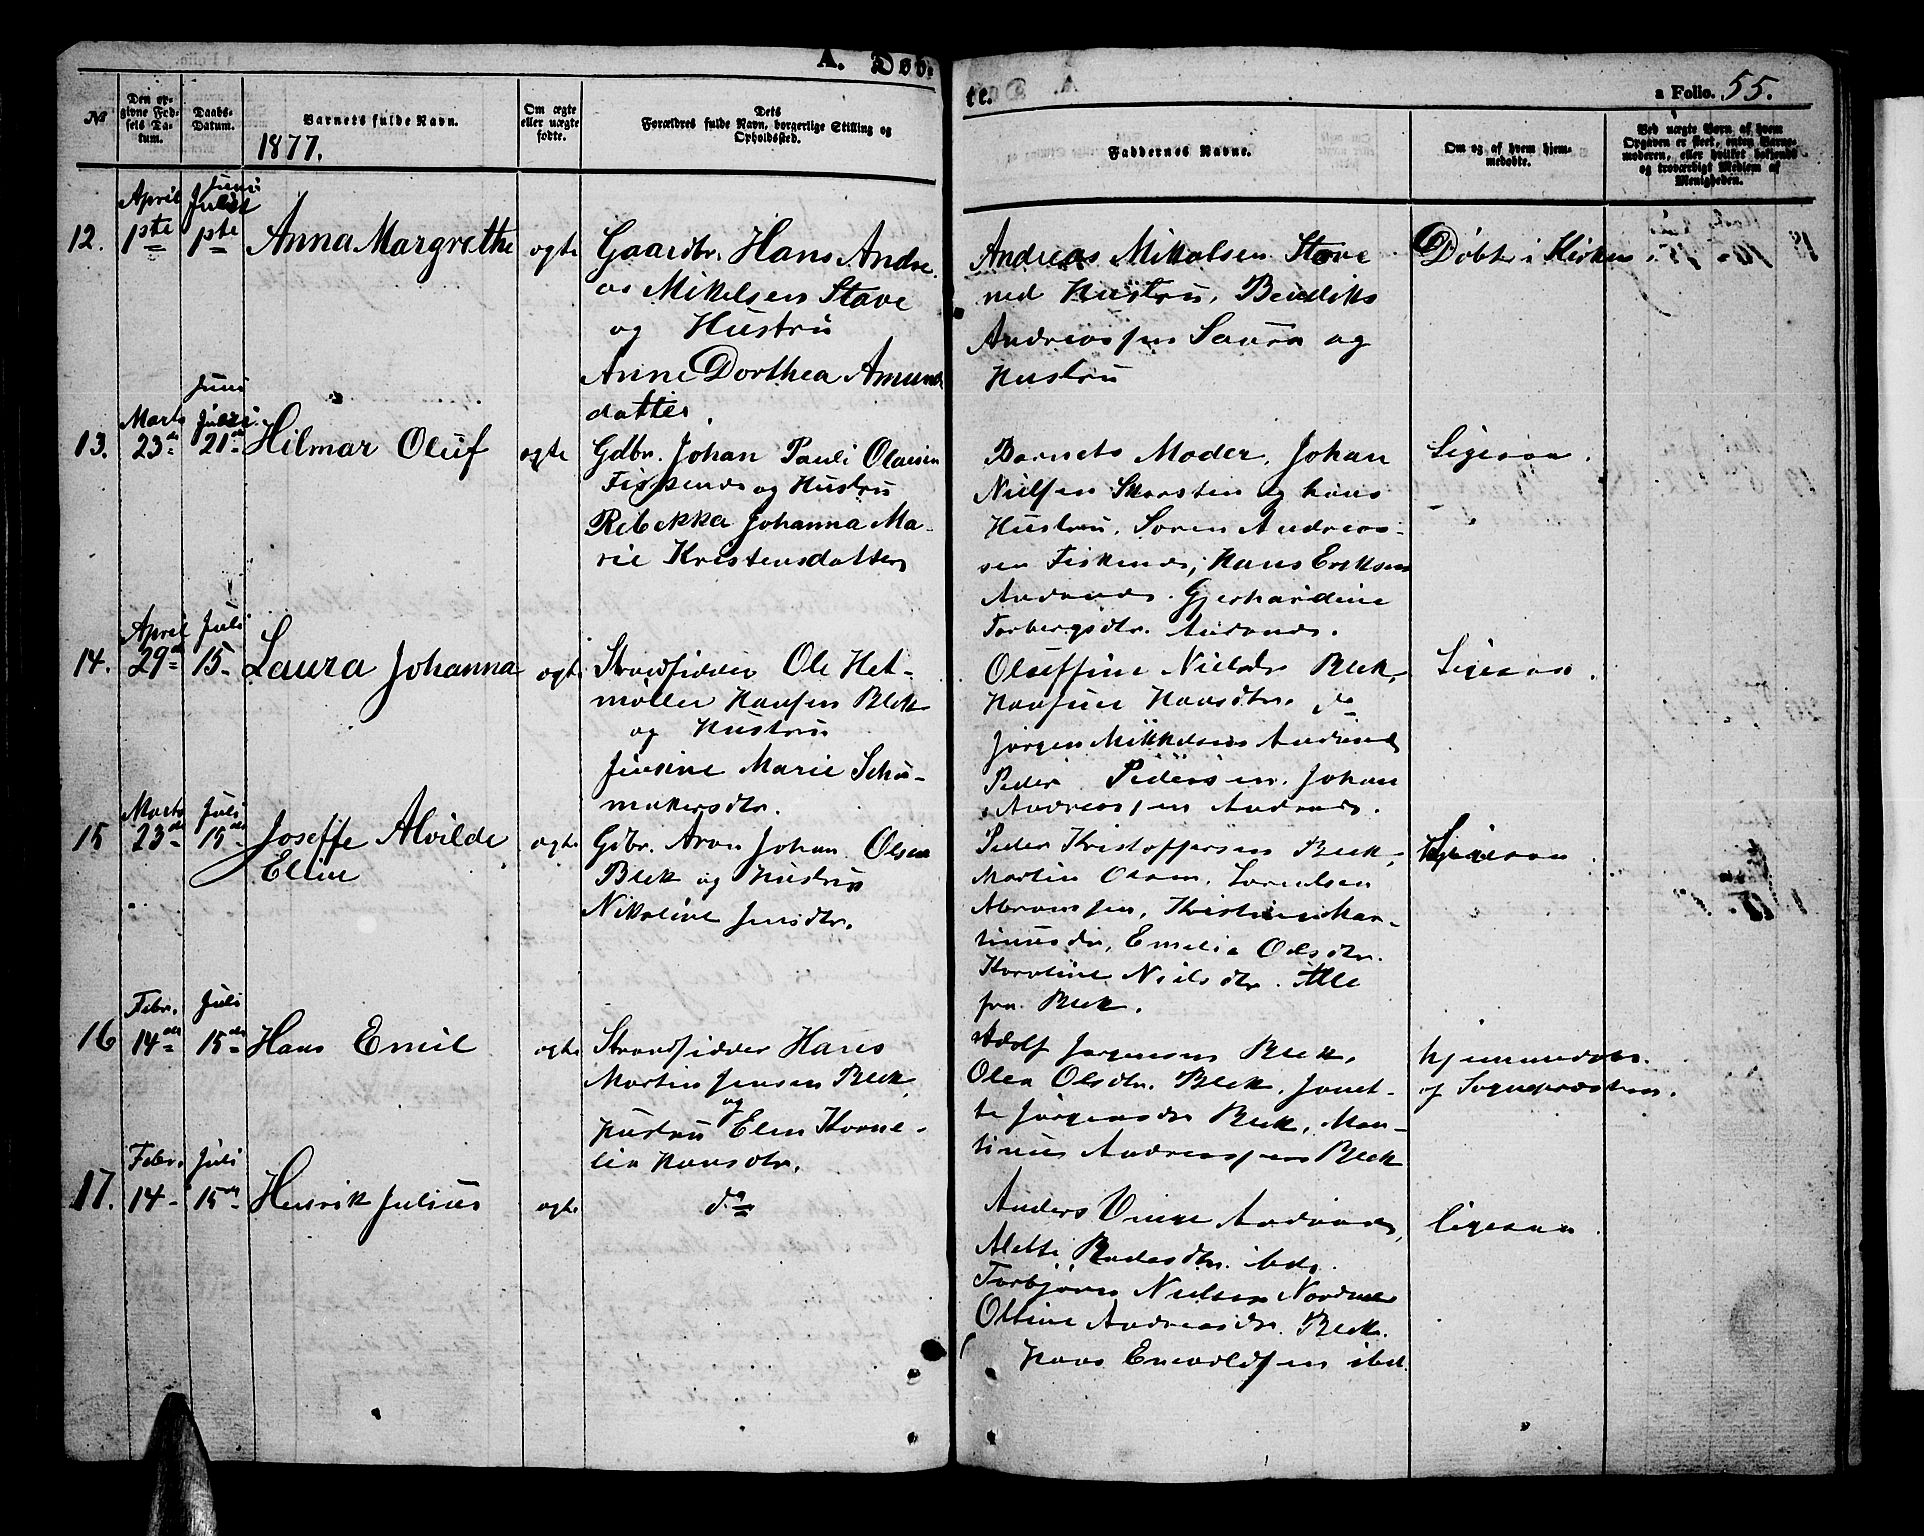 A. Døb-
te.
a Folio. 55.
№
Den opgivne Fødsels Datum.
Daabs-Datum.
Barnets fulde Navn.
1877.
Om ægte eller uægte fødte.
Dets Forældres fulde Navn, borgerlige Stilling og Opholdssted.
Faddernes Navne.
Om og af hvem hjemmedøbte.
Ved uægte Børn af hvem Opgaven er skeet, enten Barnemoderen, eller hvilket bekjendt og troværdigt Medlem af Menigheden.
12.
April 1ste
Juni
Juli 1ste
Anna Margrethe
ogte
Gaardbr. Hans Andre
as Mikelsen Stave
og Hustru
Anne Dorthea Amunds
datter.
Andreas Mikalsen Stave
med Hustru, Bendiks
Andreassen Saura og
Hustru
Døbte i Kirken
13.
Marts 23de
Juni
Juli 21de
Hilmar Oluf
ogte
Gdbr. Johan Pauli Olaisen
Fiskenes og Hustru
Rebekka Johanna Ma-
rie Kristensdatter
Barnets Moder, Johan
Nielsen Skarsten og hans
Hustru, Søren Andreas-
sen Fiskenes, Hans Eriksen
Andenes. Gjerhardine
Torbergsdtr. Andenes.
Ligesaa.
14.
April 29de
Juli 15-
Laura Johanna
ogte
Strandsidder Ole Het-
møller Hansen Bleik
og Hustru
Jensine Marie Schu-
makersdtr.
Oluffine Nielsdr Bleik,
Hansine Hansdtr. do
Jørgen Mikkelsen Andenes
Peder Pedersen. Johan
Andreassen Andenes.
Ligesaa.
15
Marts 23de
Juli 15de
Joseffe Alvilde
Eline
ogte
Gdbr. Aron Johan Olsen
Bleik og Hustru
Nikoline Jensdtr.
Peder Kristoffersen Bleik,
Martin Olsen, Lorentsen
Abramsen, Kristine Mar-
tinusdr, Emelie Olsdtr.
Karoline Nielsdtr. Alle
fra Bleik.
Ligesaa.
16
Febr. 14de
Juli 15de
Hans Emil
ogte
Strandsidder Hans
Martin Jensen Bleik
og
Hustru Elen Korne-
lia Hansdtr.
Adolf Jørgensen Bleik,
Olea Olsdtr. Bleik, Janet-
te Jørgensdr Bleik, Mar-
tinus Andreassen Bleik
hjemmedøbt
af Sognepræsten.
17.
Febr. 14-
Juli 15de
Henrik Julius
ogte
do
Anders Vinge Andenes,
Alette
Torbjørn Nielsen
Oline Andreasdr. Bleik.
Hans Enevoldsen ibd.
ligesaa